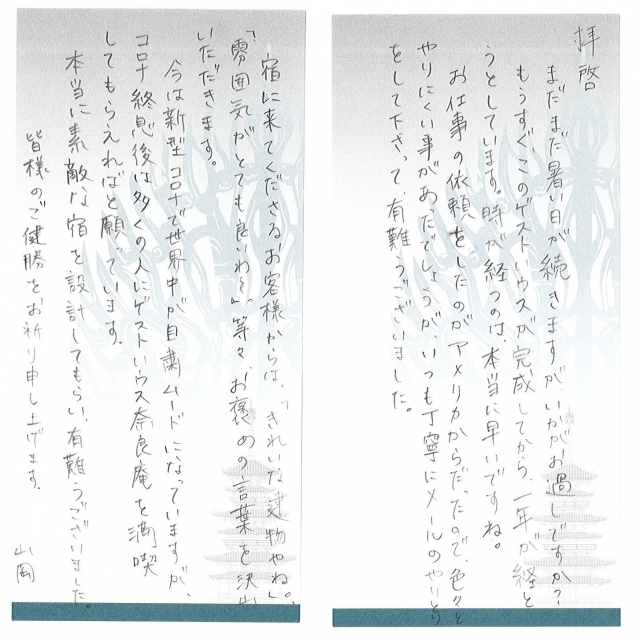 拝啓
まだまだ暑い日が続きますが、いかがお過しですか?
もうすぐ、このゲストハウスが完成してから、一年が経と
うとしています。時が経つのは、本当に早いですね。
お仕事の依頼をしたのがアメリカからだったので、色々と
やりにくい事があたでしょうが、いつも丁寧にメールのやりとり
をして下さって、有難うございました。
宿に来てくださるお客様からは、「きれいな建物やね。」、
「雰囲気がとても良いわぁ」。等々、お褒めの言葉を沢山
いただきます。
今は新型コロナで世界中が自粛ムードになっていますが、
コロナ終息後は多くの人にゲストハウス奈良庵を満喫
してもらえればと願っています。
本当に素敵な宿を設計してもらい、有難うございました。
皆様のご健勝をお祈り申し上げます。
山岡